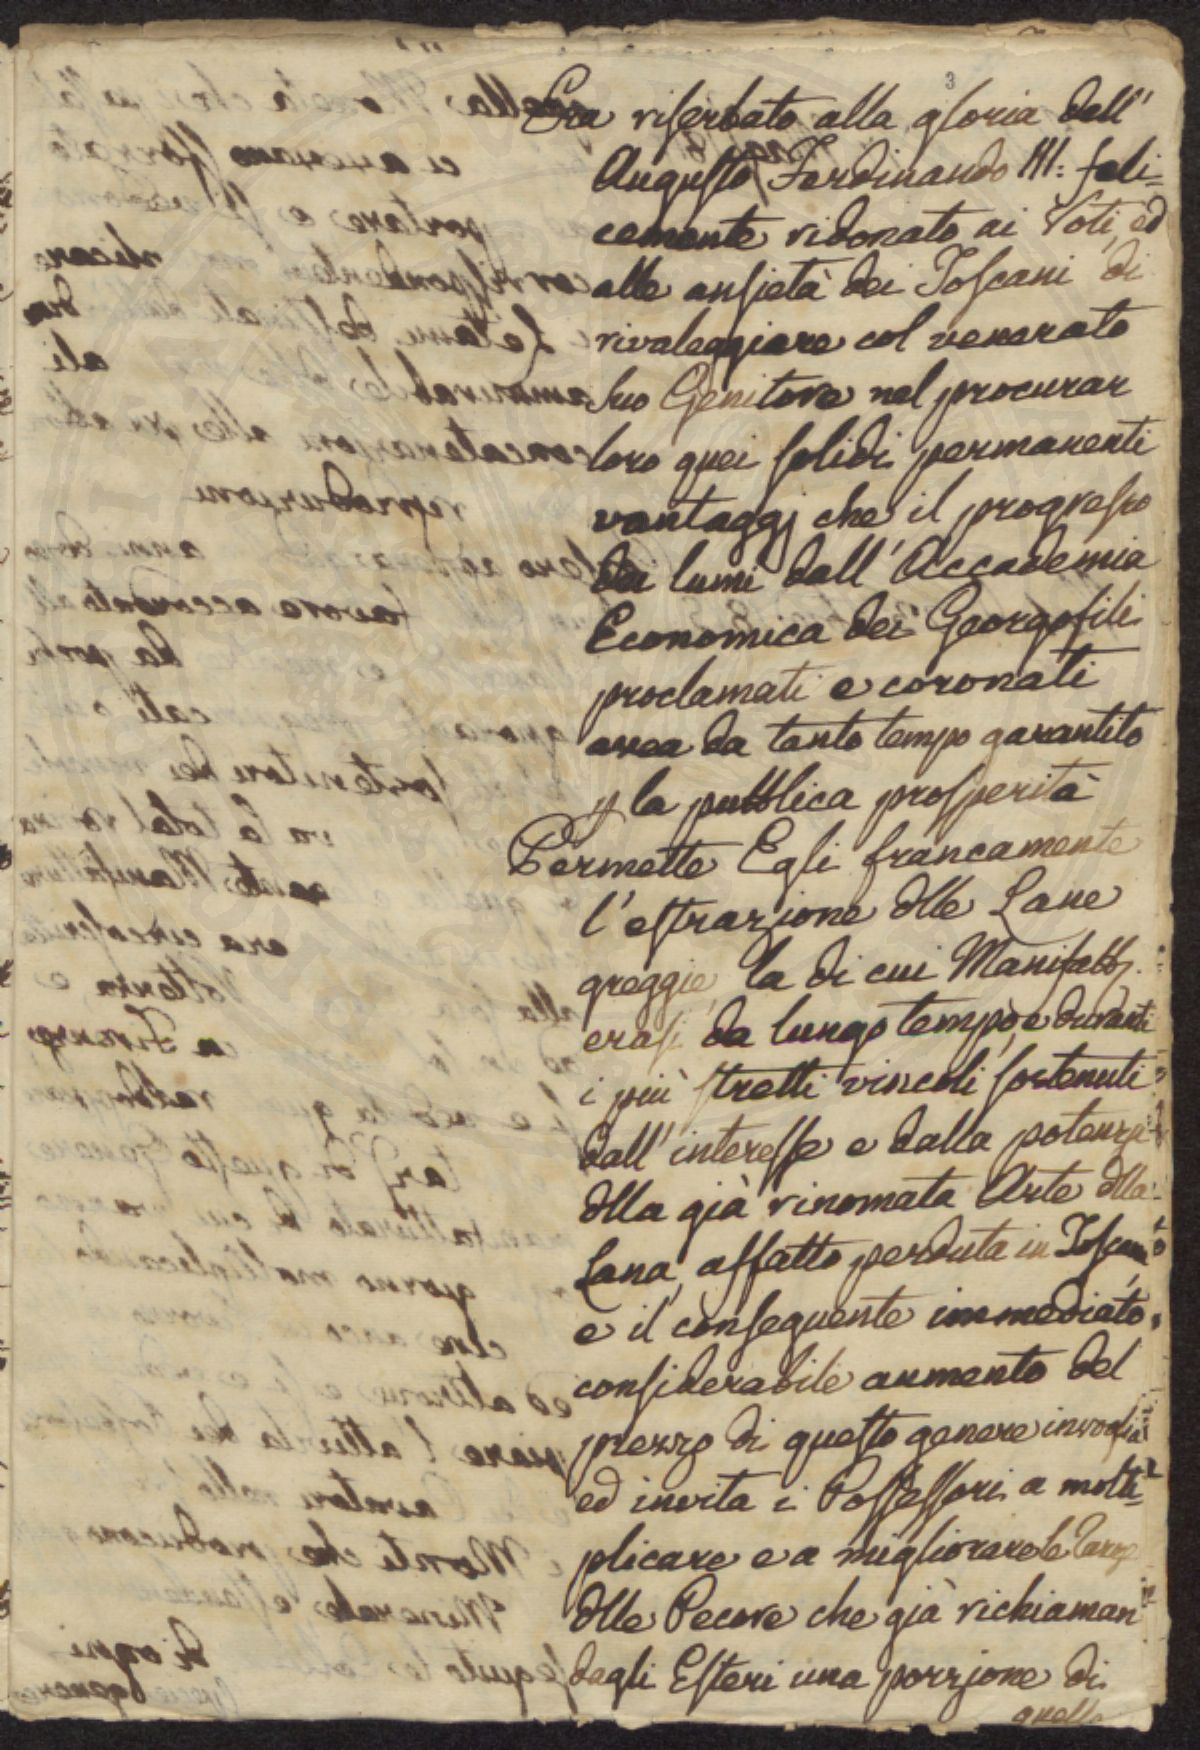 3
Era riserbato alla gloria dell'
Augusto Ferdinando III: feli=
cemente ridonato ai Voti, ed
alle ansietà dei Toscani di
rivaleggiare col venerato
suo Genitore nel procurar
loro quei solidi permanenti
vantaggj che il progresso
dei lumi dall'Accademia
Economica dei Georgofili
proclamati e coronati
avea da tanto tempo garantito
p la pubblica prosperità
Permette Egli francamente
l'estrazione dlle Lane
greggie, la di cui Manifatt.
erasi da lungo tempo, e duranti
i più stretti vincoli sostenuti
dall'interesse e dalla potenza
dlla già rinomata Arte dlla
Lana, affatto perduta in Toscana
e il conseguente immediato,
considerabile aumento del
prezzo di questo genere invoglia
ed invita i Possessori a molti=
plicare e a migliorare le Razze
dlle Pecore che già richiaman
dagli Esteri una porzione di
quella